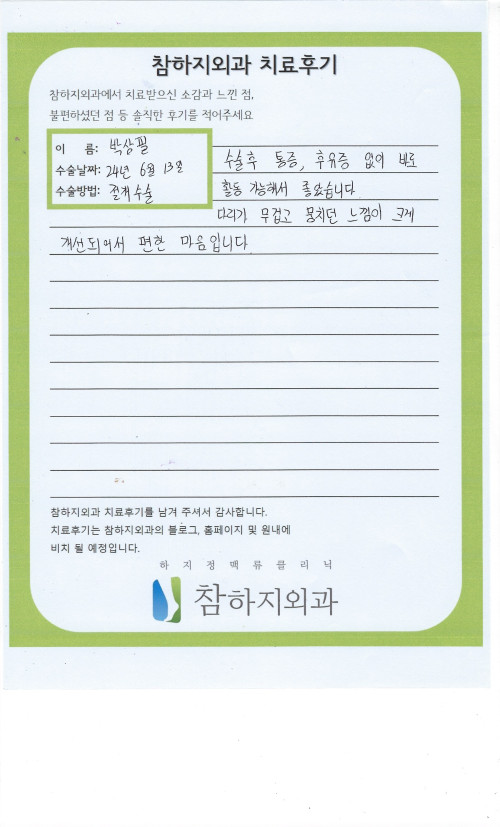 참하지외과 치료후기
참하지외과에서 치료받으신 소감과 느낀 점,
불편하셨던 점 등 솔직한 후기를 적어주세요
이 름: 박상필
수술날짜: 24년 6월 13일
수술방법: 절개수술
수술후 통증, 후유증 없이 바로
활동 가능해서 좋았습니다.
다리가 무겁고 뭉치던 느낌이 크게
개선되어서 편한 마음입니다.
참하지외과 치료후기를 남겨 주셔서 감사합니다.
치료후기는 참하지외과의 블로그, 홈페이지 및 원내에
비치 될 예정입니다.
하지정맥류클리닉
참하지외과